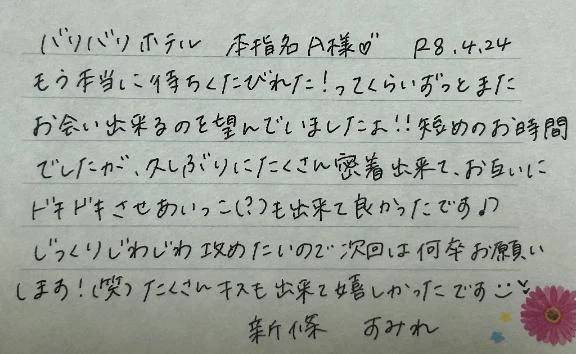 バリバリホテル 本指名A様♡ R8.4.24
もう本当に待ちくたびれた!ってくらいずっとまた
お会い出来るのを望んでいましたよ!!短めのお時間
でしたが、久しぶりにたくさん密着出来て、お互いに
ドキドキさせあいっこ(?)も出来て良かったです♪
じっくりじわじわ攻めたいので次回は何卒お願い
します!(笑)たくさんキスも出来て嬉しかったです
新條 すみれ